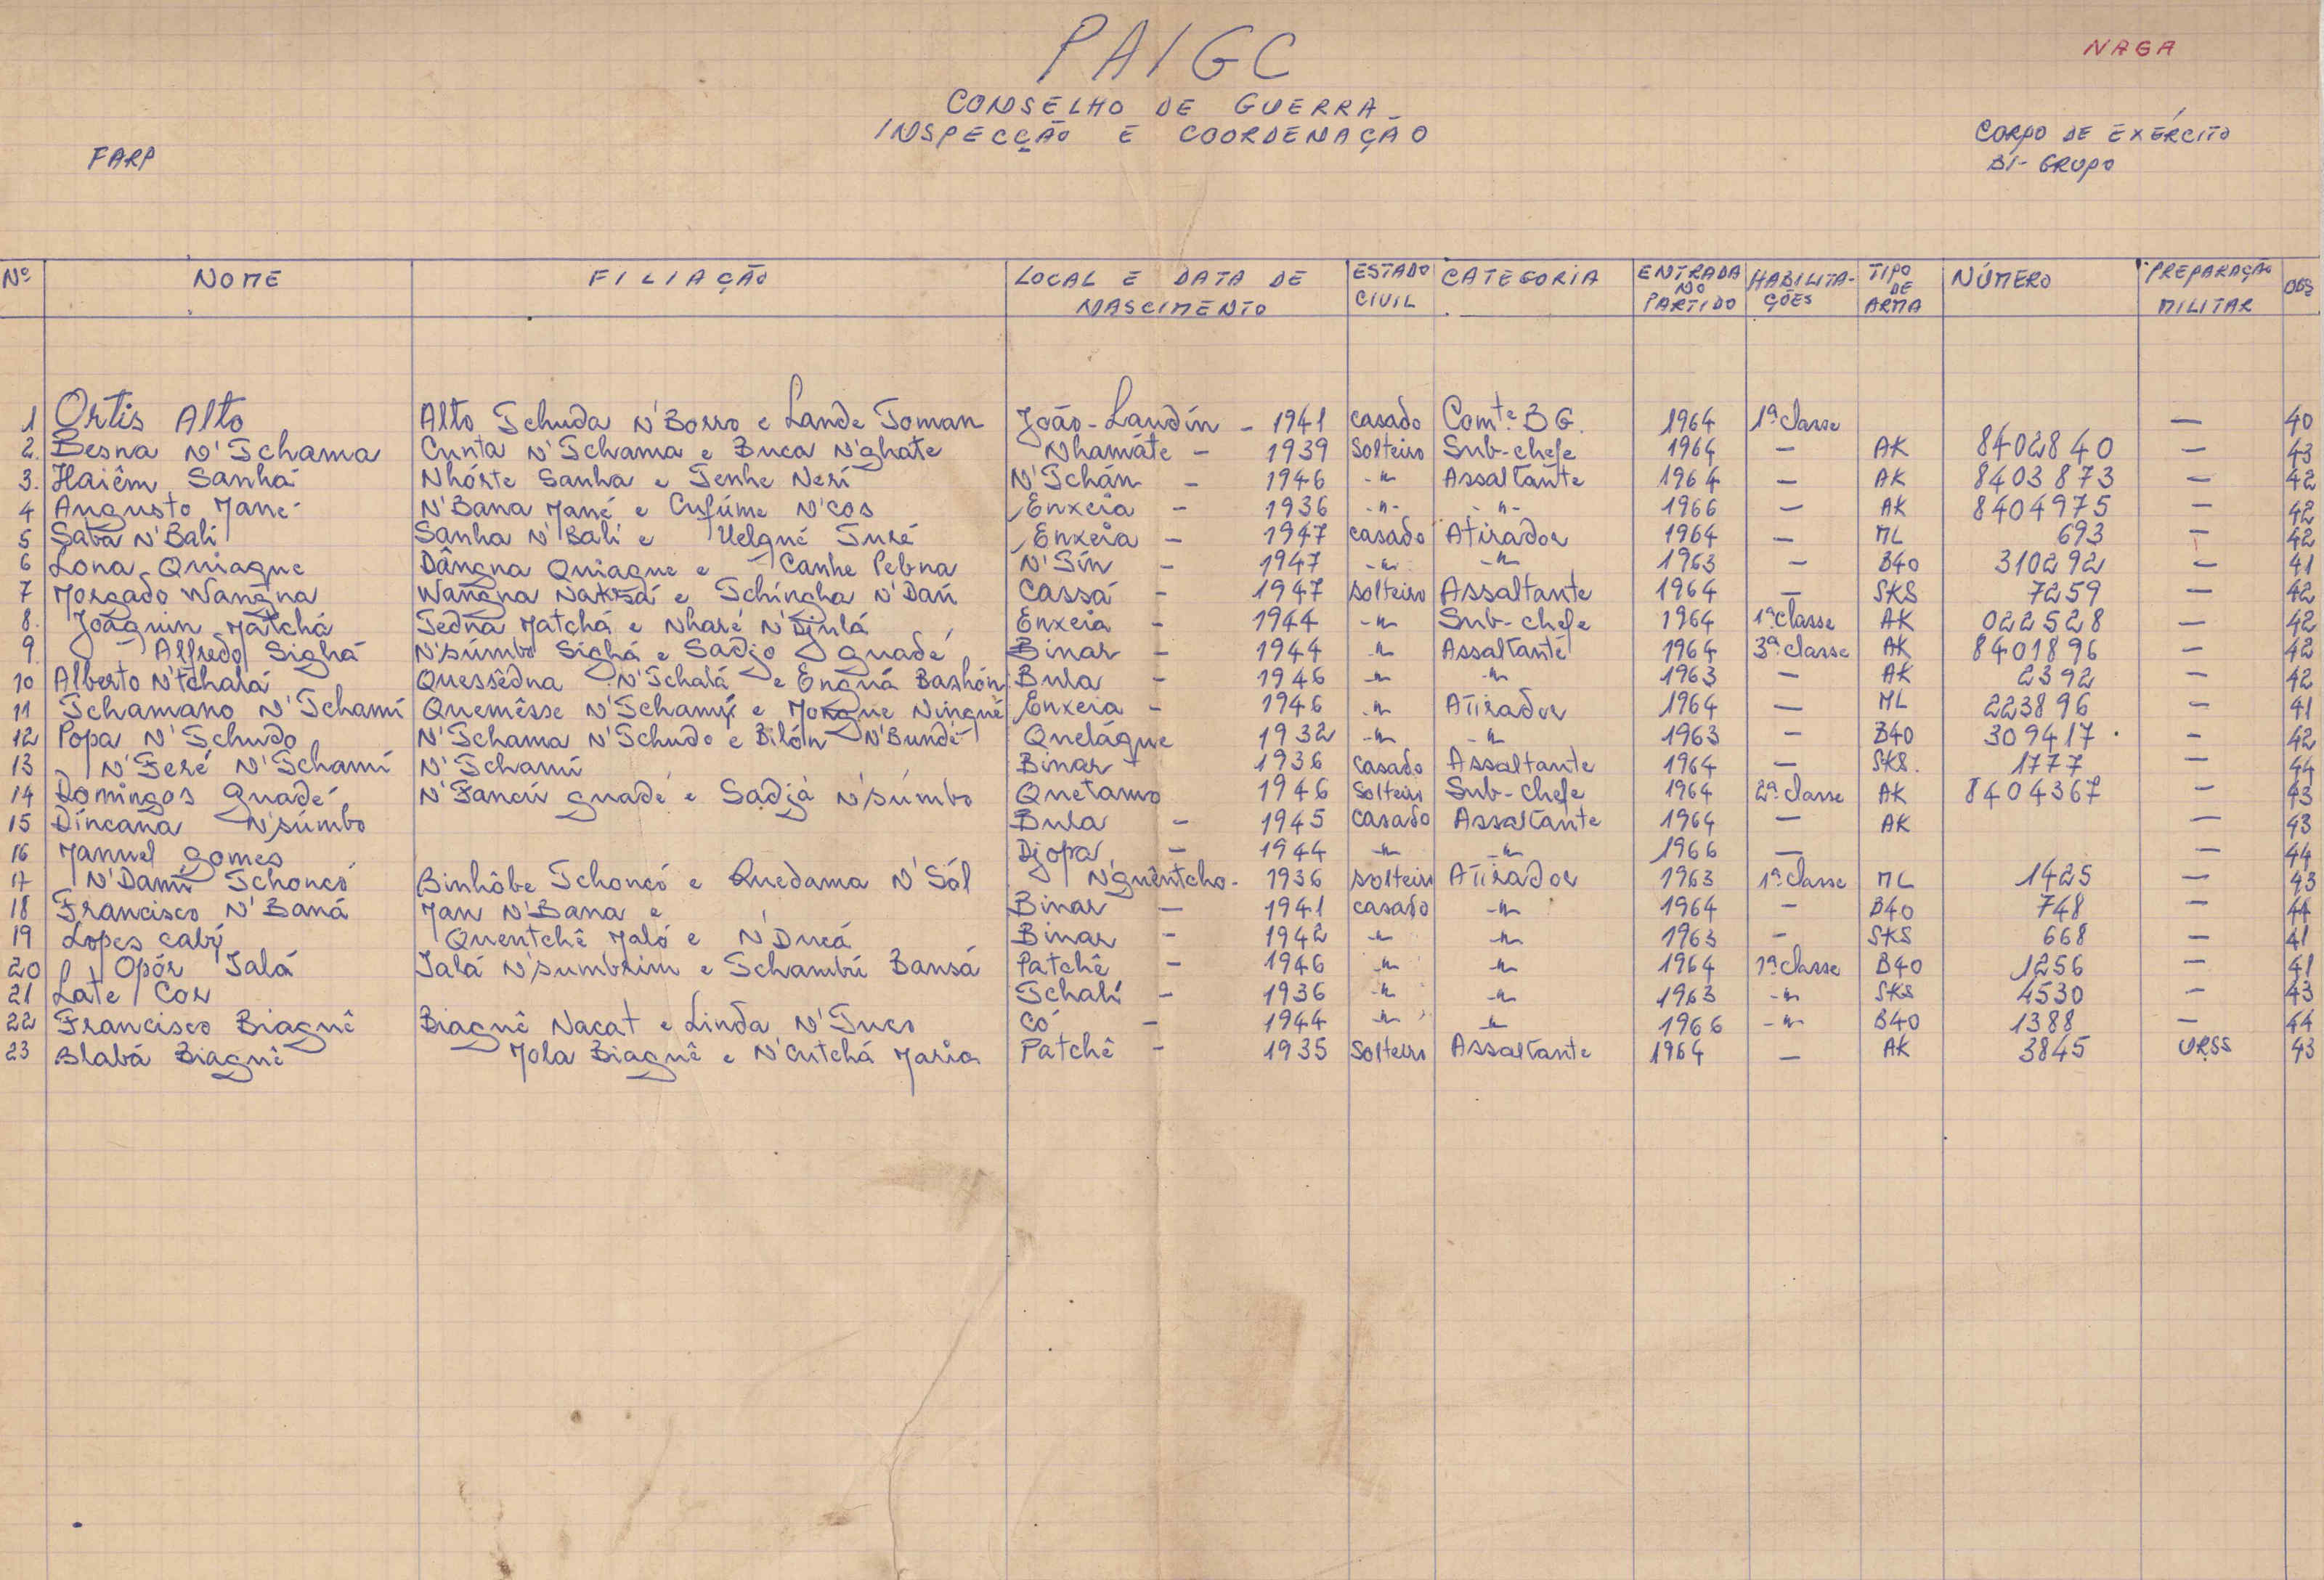 PAIGC
NAGA
CONSELHO DE GUERRA
INSPECÇÃO E COORDENAÇÃO
FARP
CORPO DE EXÉRCITO
BI-GRUPO
Nº NOME FILIAÇÃO LOCAL E DATA DE NASCIMENTO ESTADO CIVIL CATEGORIA ENTRADA NO PARTIDO HABILITA-ÇÕES TIPO DE ARMA NÚMERO PREPARAÇÃO MILITAR OBS
1 Ortis Alto Alto Tchuda N'Borro e Lande Toman João-Landín - 1941 casado Comte. BG. 1964 1ª classe — 40
2. Besna N'Tchama Cunta N'Tchama e Buca N'ghate Nhamáte - 1939 Solteiro Sub-chefe 1964 — AK 8402840 — 43
3. Haiêm Sanhá Nhórte Sanha e Tenhe Nerí N'Tchán - 1946 -"- Assaltante 1964 — AK 8403873 — 42
4 Augusto Mané N'Bana Mané e Cufúme N'cos Enxeia - 1936 -"- -"- 1966 — AK 8404975 — 42
5 Sabá N'Bali Sanha N'Bali e Uelgué Turé Enxeia - 1947 casado Atirador 1964 — ML 693 — 42
6 Lona Quiague Dângna Quiague e Canhe Pebna N'Sín - 1947 -"- -"- 1963 — B40 310292 — 41
7 Morgado Wangna Wangna e Tchíngha N'Dañ Cassá - 1947 solteiro Assaltante 1964 — SKS 7259 — 42
8. Joãquin Matchá Tedna Matchá e Nharé N'Djulá Enxeia - 1944 -"- Sub-chefe 1964 1ª classe AK 022528 — 42
9 Alfredo Sighá N'súmbo Sighá e Sadjo guadé Binar - 1944 -"- Assaltante 1964 3ª classe AK 8401896 — 42
10 Alberto N'tchalá Quessêdna N'Tchalá e Enguá Bashón Bula - 1946 -"- -"- 1963 — AK 2392 — 42
11 Tchamano N'Tchamí Quemêsse N'Tchamí e Mongue Ninguê Enxeia - 1946 -"- Atirador 1964 — ML 223896 — 41
12 Popa N'Tchudo N'Tchama N'Tchudo e Bilón N'Bundé Quelágue 1932 -"- -"- 1963 — B40 309417 — 42
13 N'Feré N'Tchamí N'Tchamí Binar - 1936 casado Assaltante 1964 — SKS. 1777 — 44
14 Domingos Guadé N'Fancú guadé e Sadjá N'súmbo Quetamo 1946 Solteiro Sub-chefe 1964 2ª classe AK 8404367 — 43
15 Dincana N'súmbo Bula - 1945 casado Assaltante 1964 — AK — 43
16 Manuel gomes Djopa - 1944 -"- -"- 1966 — — 44
17 N'Damí Tchoncó Binhôbe Tchoncó e Quedama N'Sól N'guêntcho - 1936 solteiro Atirador 1963 1ª classe ML 1425 — 43
18 Francisco N'Baná Man N'Bana e Binar - 1941 casado -"- 1964 — B40 748 — 44
19 Lopes cabí Quentchê Maló e N'Ducá Binar - 1942 -"- -"- 1963 — SKS 668 — 41
20 Opór Ialá Ialá N'sumbrim e Tchambú Bansá Patchê - 1946 -"- -"- 1964 1ª classe B40 1256 — 41
21 Late Cor Tchalí - 1936 -"- -"- 1963 -"- SKS 4530 — 43
22 Francisco Biaguê Biaguê Nacat e Linda N'Tuco Có - 1944 -"- -"- 1966 -"- B40 1388 — 44
23 Blabá Biaguê Mola Biaguê e N'cutchá Maria Patchê - 1935 Solteiro Assaltante 1964 — AK 3845 URSS 43